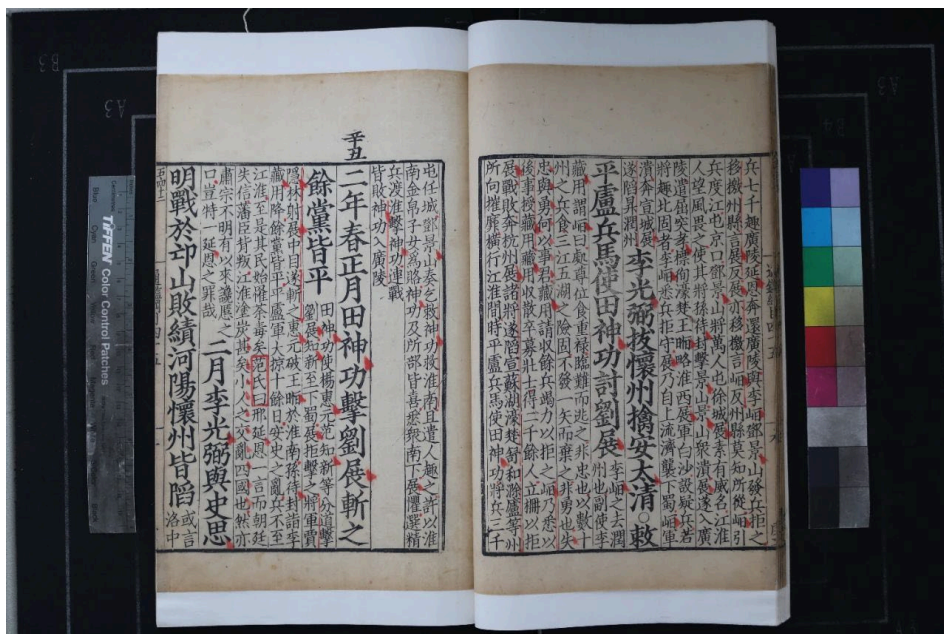 兵七千趣廣陵延恩奔還廣陵與李峘鄧景山發兵拒之
移檄州縣言展反展亦移檄言峘反州縣莫知所從峘引
兵度江屯京口鄧景山將萬人屯徐城展素有威名江淮
人望風畏之使其將孫待封擊景山景山衆潰展遂入廣
陵謂屈突孝標徇濠楚王暅略淮西展軍白沙設疑兵若
將趣北固者李峘悉兵拒守展乃自上流濟襲下蜀峘軍
潰奔宣城展
遂陷昇潤州
李光弼拔懷州擒安太清 敕
平盧兵馬使田神功討劉展
李峘之去潤
州也副使李
藏用謂峘曰處尊位食重祿臨難而逃之非忠也以數十
州之兵食三江五湖之險固不發一矢而棄之非勇也失
忠與勇何以事君藏用請收餘兵竭力以拒之峘乃悉以
後事授藏用藏用收散卒募壯士得二千餘人立柵以拒
展戰敗奔杭州展諸將遂陷宣蘇湖濠楚舒和滁廬等州
所向摧靡橫行江淮間時平盧兵馬使田神功將兵三千
屯任城鄧景山奏乞敕神功救淮南且遣人趣之許以淮
南金帛子女為賂神功及所部皆喜悉衆南下展懼選精
兵渡淮擊神功連戰
皆敗神功入廣陵
辛丑
二年春正月田神功擊劉展斬之
餘黨皆平
田神功使楊惠元范知新等分道擊
劉展知新至下蜀展拒擊之將軍賈
隱林射展中目遂斬之惠元破王暅於淮南孫待封詣李
藏用降餘黨皆平平盧軍大掠十餘日安史之亂兵不至
江淮至是其民始罹荼毒矣范氏曰邢延恩一言而朝廷
失信藩臣背叛江淮塗炭甚矣小人之交亂四國也然亦
肅宗不明有以來讒慝之
口豈特一延恩之罪哉
二月李光弼與史思
明戰於邙山敗績河陽懷州皆陷
或言
洛中
TIFFEN Color Control Patches
A3
B3
A3